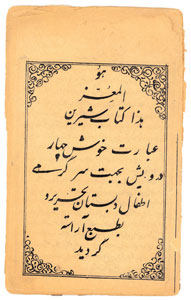 هو
المعز
هذا کتاب شیرین
عبارت خوش چهار
درویش بجهت سرگرمی
اطفال دبستان تحریر و
بطبع آراسته
گردید